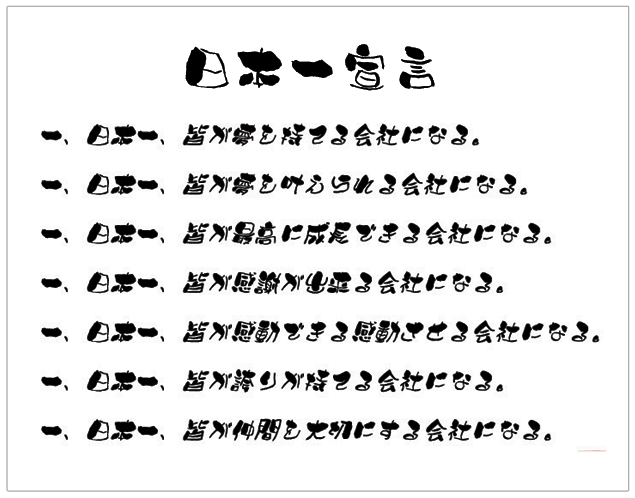 日本一宣言
一、日本一、皆が夢を持てる会社になる。
一、日本一、皆が夢を叶えられる会社になる。
一、日本一、皆が最高に成長できる会社になる。
一、日本一、皆が感謝が出来る会社になる。
一、日本一、皆が感動できる感動させる会社になる。
一、日本一、皆が誇りが持てる会社になる。
一、日本一、皆が仲間を大切にする会社になる。